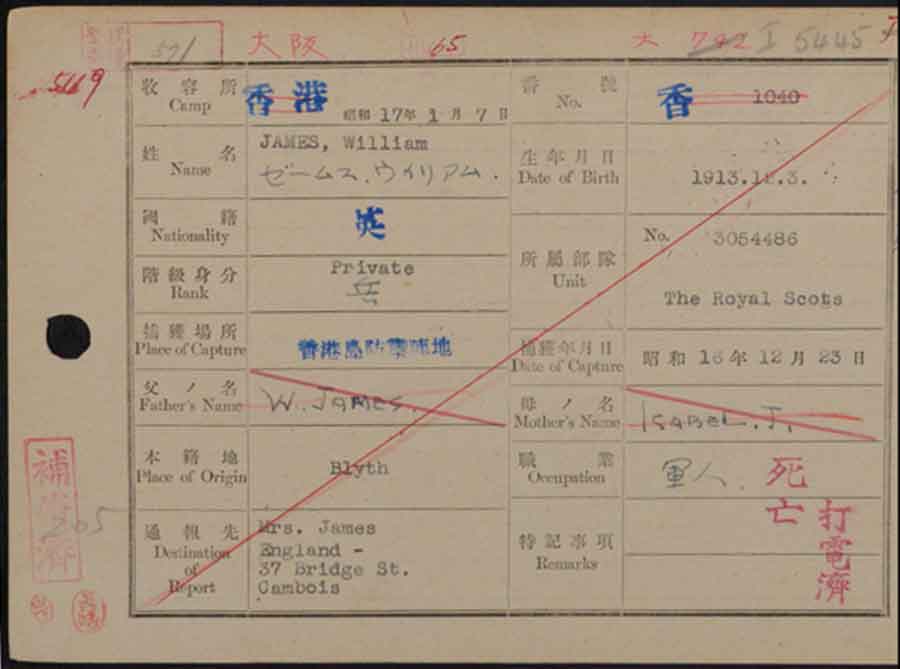 571 大阪 65 大 742 I 5445
5119
收容所 Camp 香港 昭和 17年 1月 7日
番號 No. 香 1040
姓名 Name JAMES, William
ゼームス、ウイリアム.
生年月日 Date of Birth 1913.12.3.
國籍 Nationality 英
階級身分 Rank Private
兵
所屬部隊 Unit No. 3054486
The Royal Scots
捕獲場所 Place of Capture 香港島防禦陣地
捕獲年月日 Date of Capture 昭和 16年 12月 23日
父ノ名 Father's Name W. JAMES.
母ノ名 Mother's Name ISABEL. J.
本籍地 Place of Origin Blyth
職業 Occupation 軍人. 死亡
通報先 Destination of Report Mrs. James
England -
37 Bridge St.
Cambois
特記事項 Remarks
打電濟